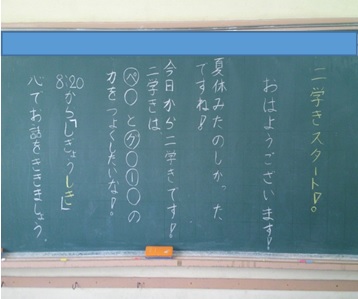 二学きスタート!
おはようございます!
夏休みたのしかった
ですね!
今日から二学きです!
二学きは
ペ〇とグ〇ー〇の
力をつよくしたいな!
8:20から「しぎょうしき」
心でお話をききましょう。